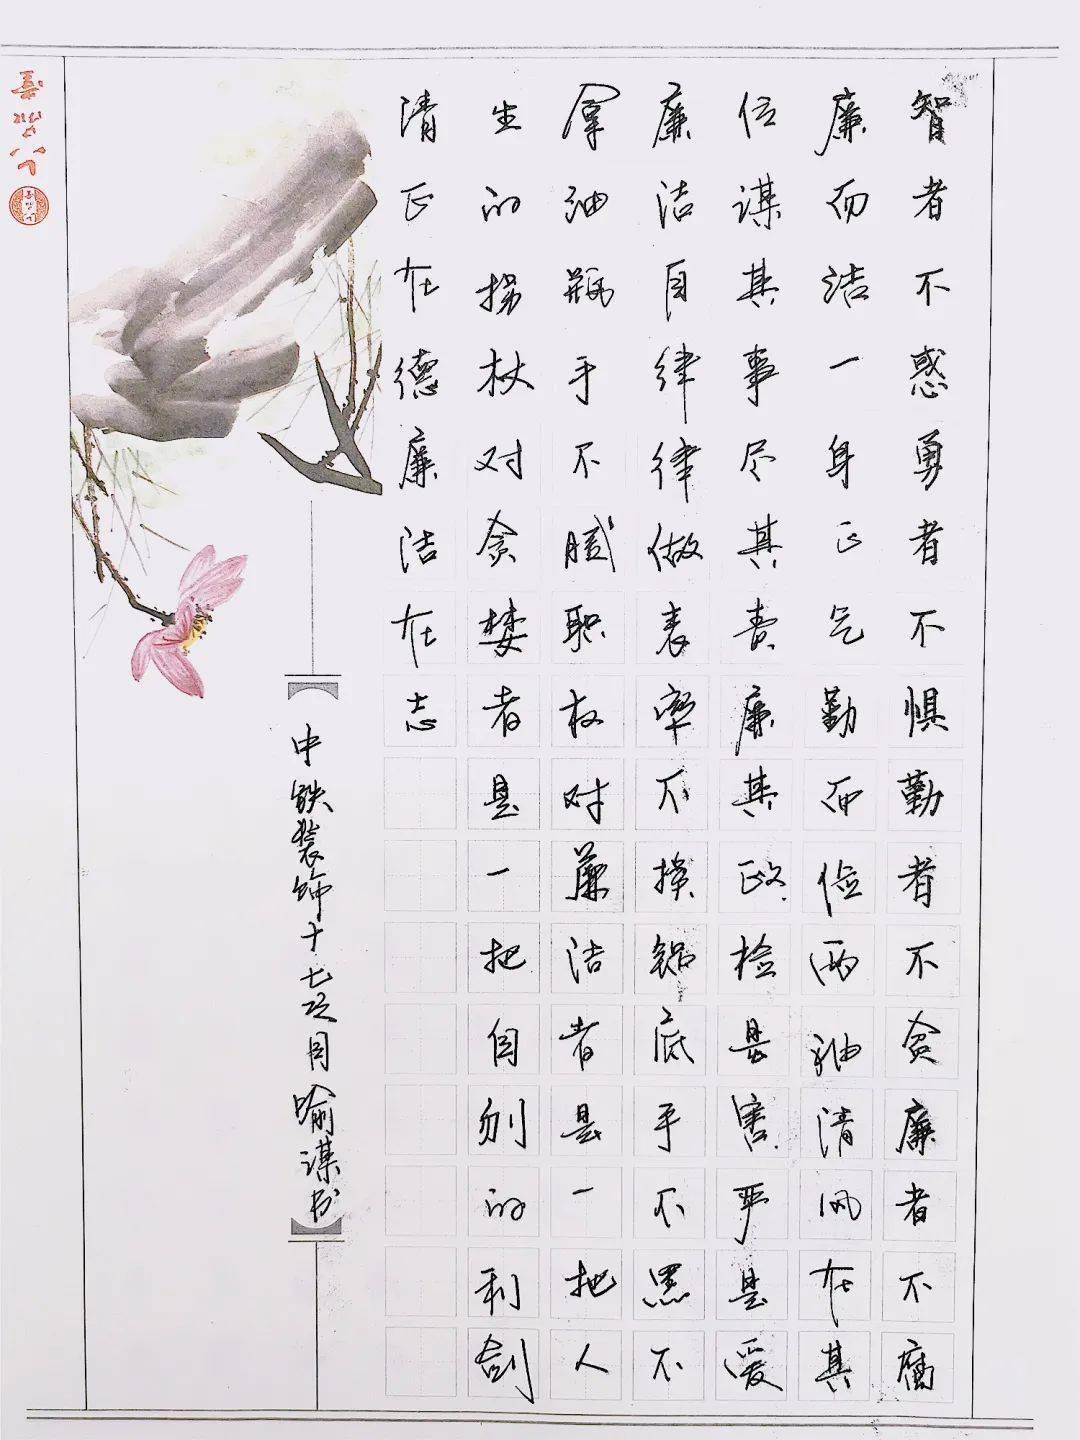 智者不惑勇者不惧勤者不贪廉者不腐
廉而洁一身正气勤而俭两袖清风在其
位谋其事尽其责廉其政检是害严是爱
廉洁自律律做表率不摸锅底手不黑不
拿油瓶手不腻职权对廉洁者是一把人
生的拐杖对贪婪者是一把自刎的利剑
清正在德廉洁在志
中铁装饰十七项目喻谋书